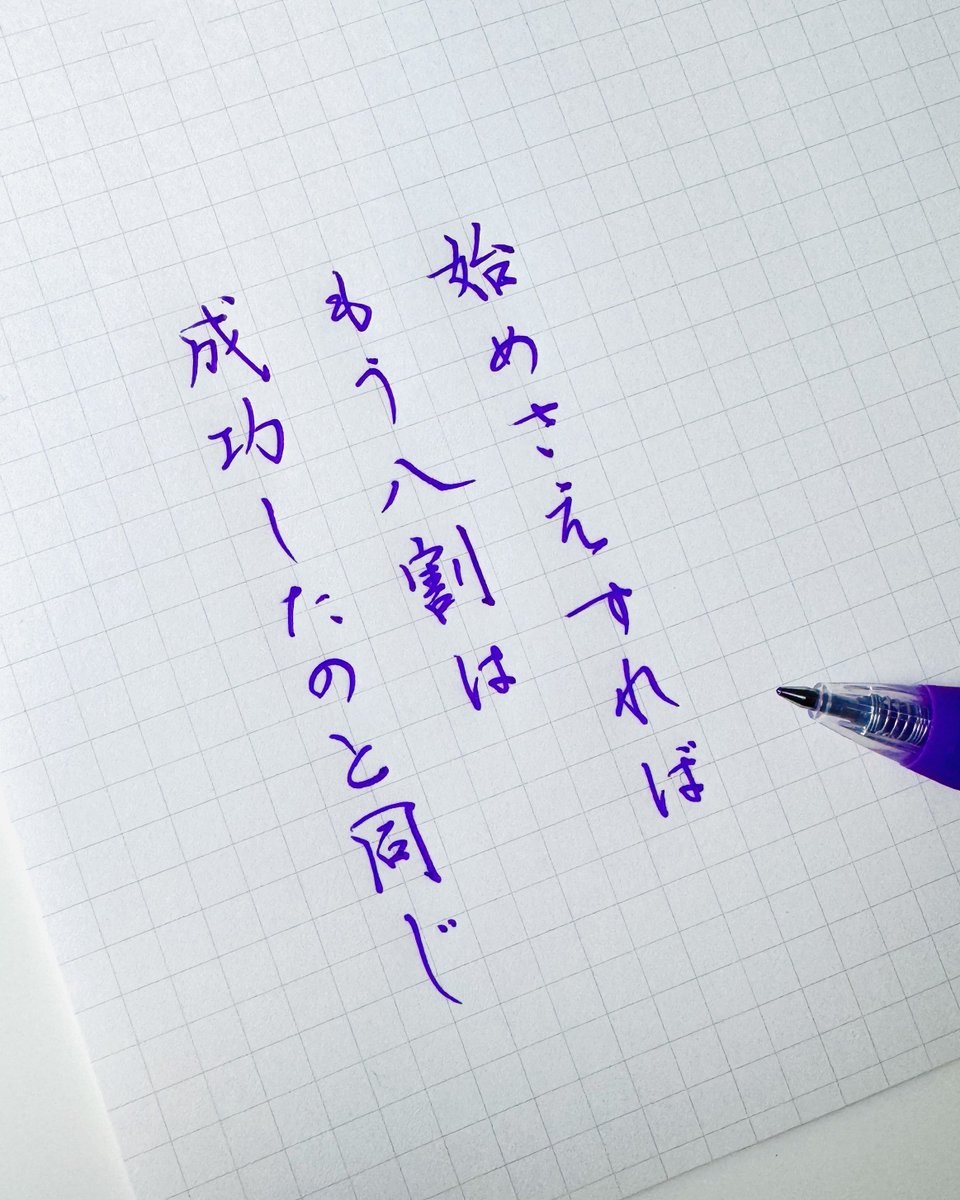 始めさえすれば
もう八割は
成功したのと同じ